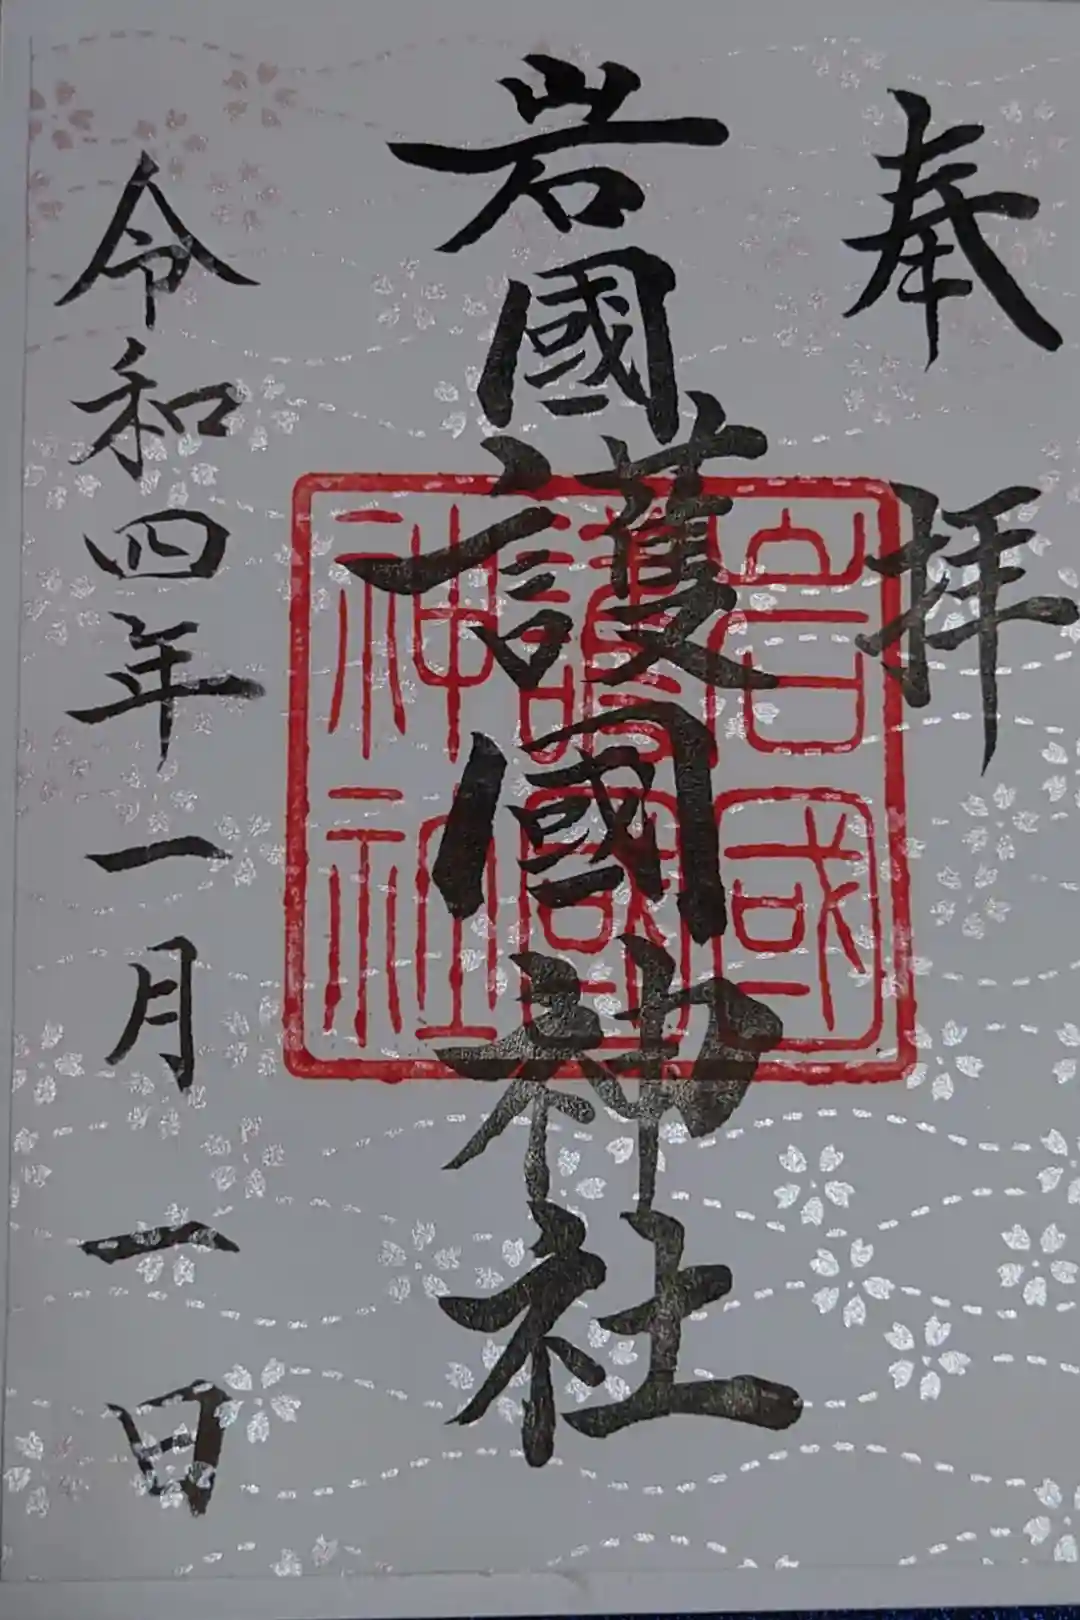 奉拝
岩國護國神社
岩國
護國
神社
令和四年一月一日